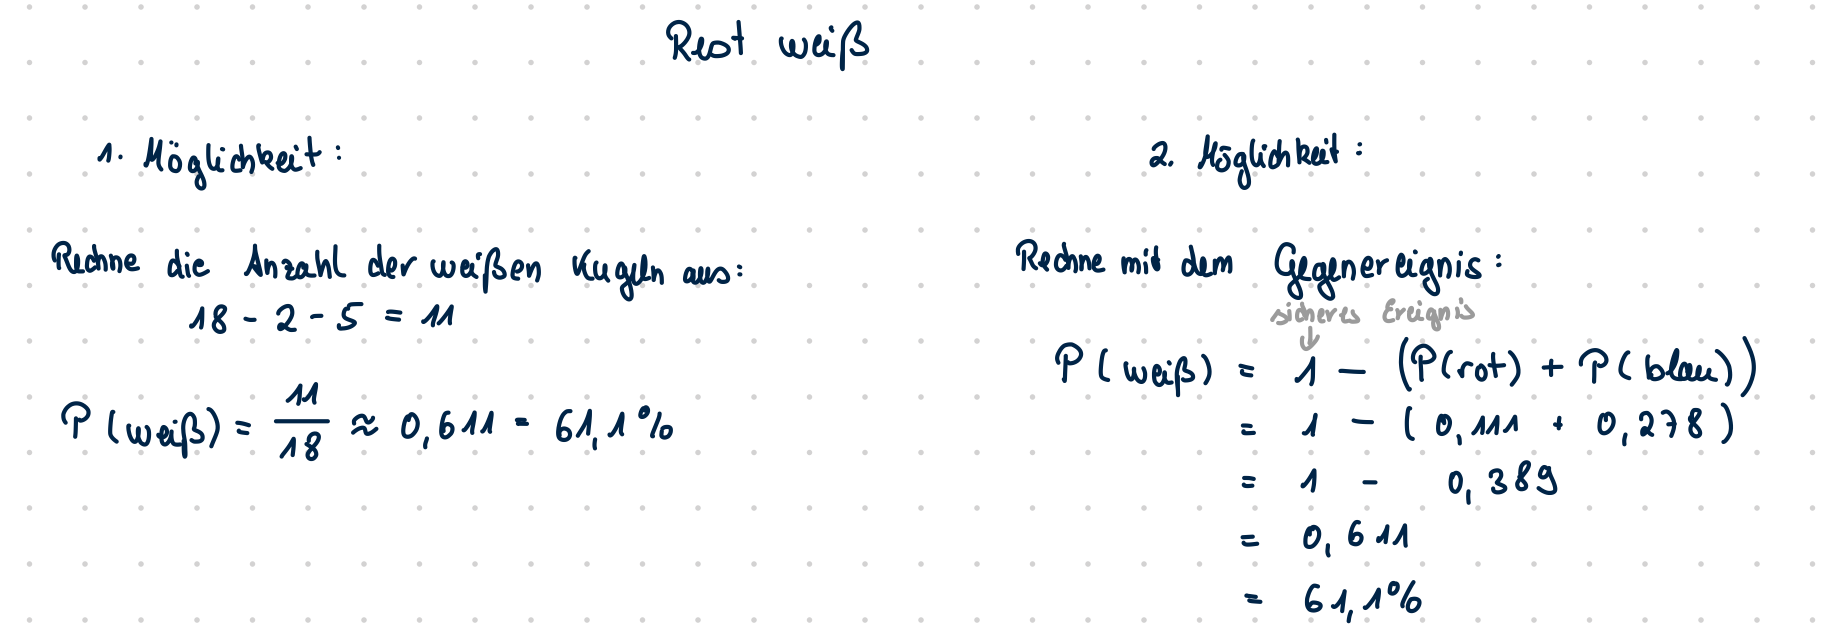 Rest weiß
1. Möglichkeit:
Rechne die Anzahl der weißen Kugeln aus:
18 - 2 - 5 = 11
P(weiß) = 11/18 ≈ 0,611 = 61,1%
2. Möglichkeit:
Rechne mit dem Gegenereignis:
sicheres Ereignis
↓
P(weiß) = 1 - (P(rot) + P(blau))
= 1 - (0,111 + 0,278)
= 1 - 0,389
= 0,611
= 61,1%